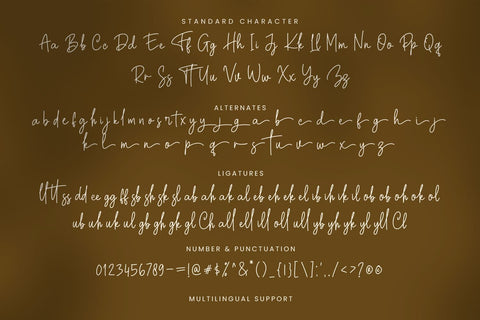 STANDARD CHARACTER
Aa Bb Cc Dd Ee Ff Gg Hh Ii Jj Kk Ll Mm Nn Oo Pp Qq
Rr Ss Tt Uu Vv Ww Xx Yy Zz
ALTERNATES
a b c d e f g h i j k l m n o r s t x y j g a b c d e f g h i j
k l m n o p q r s t u v w x y z
LIGATURES
tt ss dd ee gg ff sb sh sk sl ab ah ak al eb eh ek el ib ih ik il ob ob oh ok ol
ub uh uk ul gb gh gk gl Ch all ell ill oll ull yb yh yk yl yll Cl
NUMBER & PUNCTUATION
0123456789-=!@#$%^&*()_{|}[\]:',./<>?©®
MULTILINGUAL SUPPORT